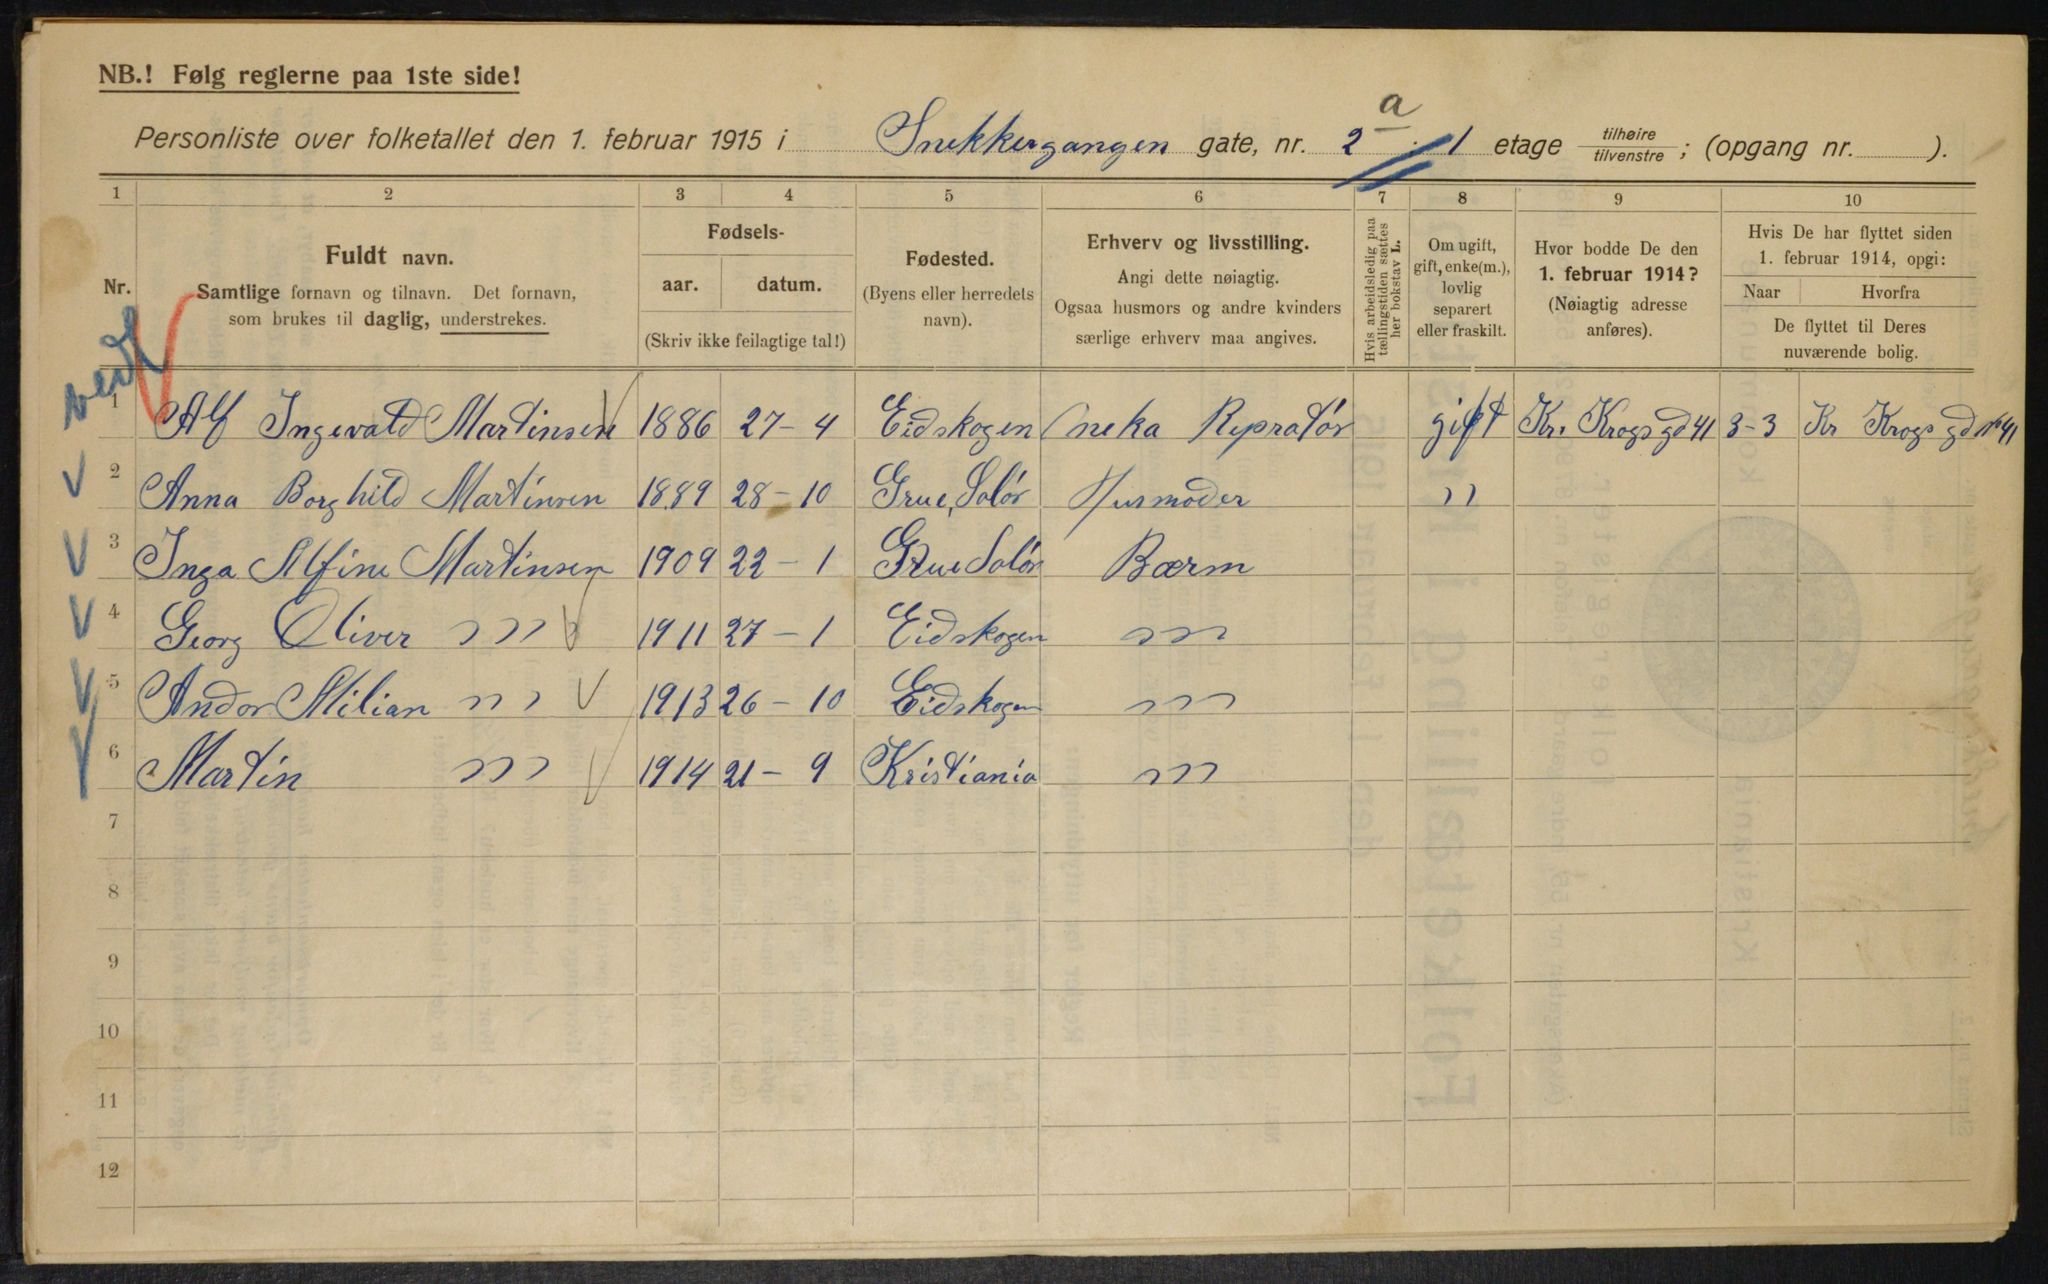 NB.! Følg reglerne paa 1ste side!
Personliste over folketallet den 1. februar 1915 i Snekkergangen gate, nr. 2 a 1 etage tilhøire / tilvenstre ; (opgang nr. ).
1 2 3 4 5 6 7 8 9 10
Nr.
Fuldt navn.
Samtlige fornavn og tilnavn. Det fornavn,
som brukes til daglig, understrekes.
Fødsels-
aar. datum.
(Skriv ikke feilagtige tal!)
Fødested.
(Byens eller herredets
navn).
Erhverv og livsstilling.
Angi dette nøiagtig.
Ogsaa husmors og andre kvinders
særlige erhverv maa angives.
Hvis arbeidsledig paa
tællingstiden sættes
her bokstav L.
Om ugift,
gift, enke(m.),
lovlig
separert
eller fraskilt.
Hvor bodde De den
1. februar 1914?
(Nøiagtig adresse
anføres).
Hvis De har flyttet siden
1. februar 1914, opgi:
Naar Hvorfra
De flyttet til Deres
nuværende bolig.
1 Alf Ingevald Martinsen 1886 27-4 Eidskogen Repratør gift Kr. Krogs gd 41 3-3 Kr Krogs gd No 41
2 Anna Borghild Martinsen 1889 28-10 Grue, Solør Husmoder "
3 Inga Alfine Martinsen 1909 22-1 Grue Solør Bærm
4 Georg Oliver " 1911 27-1 Eidskogen "
5 Andor Milian " 1913 26-10 Eidskogen "
6 Martin " 1914 21-9 Kristiania "
7
8
9
10
11
12